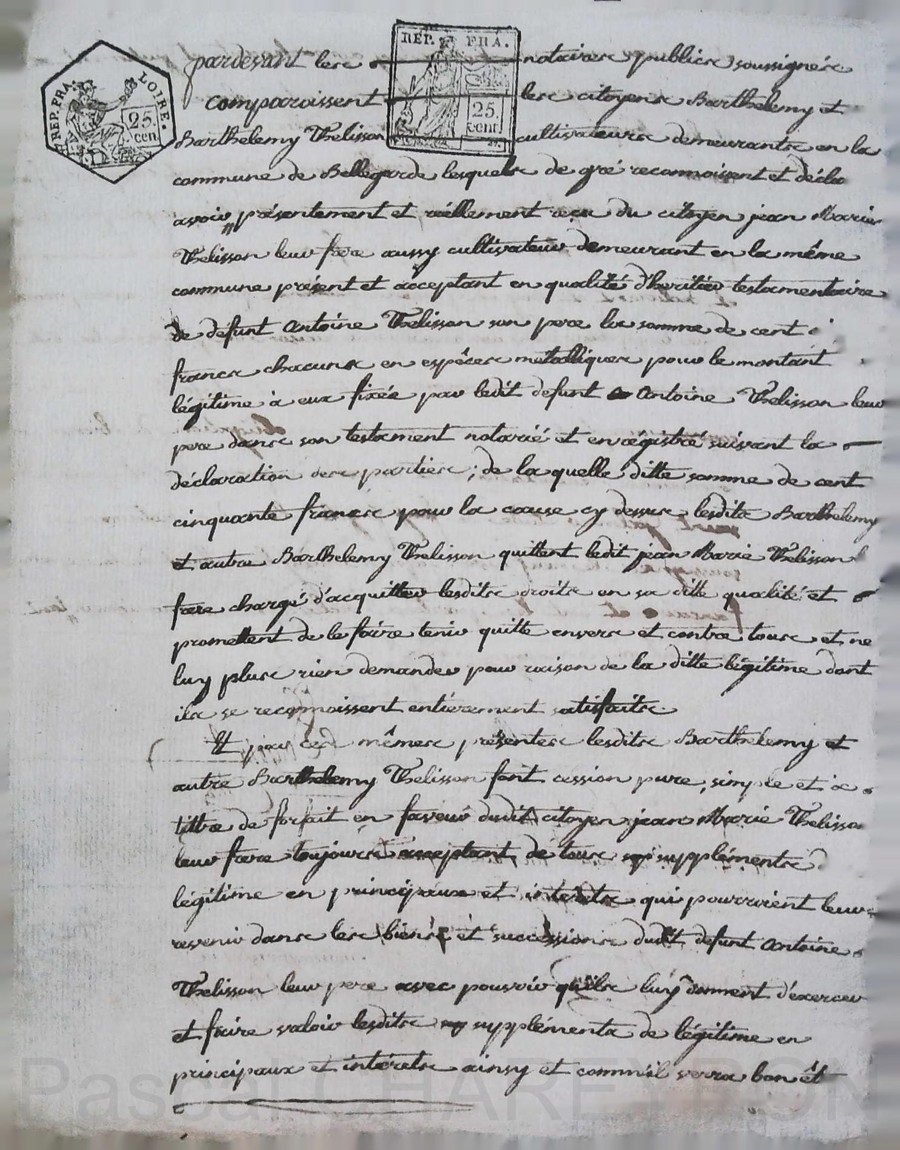 REP. FRA. LOIRE.
25. cen
REP. FRA.
25 cent
pardevant les notaires publics soussignés
comparoissent les citoyens Barthelemy et
Barthelemy Thelisson cultivateurs demeurants en la
commune de Bellegarde lesquels de gré reconnoissent et décla
avoir présentement et réellement reçu du citoyen jean Marie
Thelisson leur frere aussy cultivateur demeurant en la même
commune présent et acceptant en qualité d'heritier testamentaire
de defunt Antoine Thelisson son pere la somme de cent
francs chacuns en espêces metalliques pour le montant
légitime à eux fixée par ledit defunt Antoine Thelisson leur
pere dans son testament notarié et enregistré suivant la
déclaration des parties ; de la quelle ditte somme de cent
cinquante francs pour la cause cy dessus lesdits Barthelemy
et autre Barthelemy Thelisson quittent ledit jean Marie Thelisson
frere chargé d'acquitter lesdits droits en sa ditte qualité et
promettent de le faire tenir quitte envers et contre tous et ne
luy plus rien demander pour raison de la ditte légitime dont
ils se reconnoissent entièrement satisfaits
Et par ces mêmes présentes lesdits Barthelemy et
autre Barthelemy Thelisson font cession pure, simple et à
titre de forfait en faveur dudit citoyen jean Marie Thelisson
leur frere toujours acceptant de tous supplements
légitime en principaux et interets qui pourroient leur
revenir dans les biens et successions dudit defunt Antoine
Thelisson leur pere avec pouvoir qu'ils luy donnent d'exercer
et faire valoir lesdits supplements de légitime en
principaux et intérêts ainsy et comm'il verra bon êt
Pascal CHAREYRON